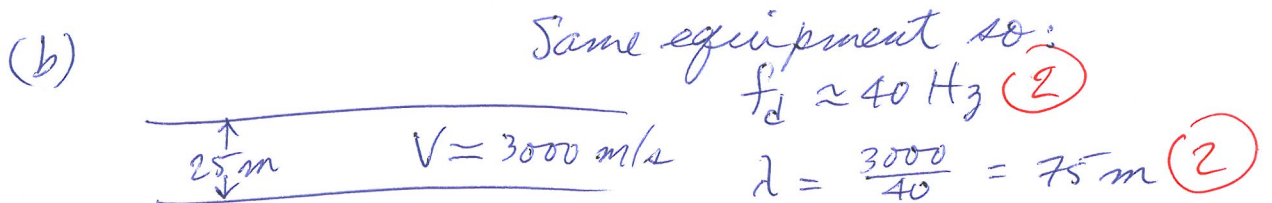 (b) Same equipment so:
f_d ≃ 40 Hz (2)
25 m V = 3000 m/s λ = 3000/40 = 75 m (2)